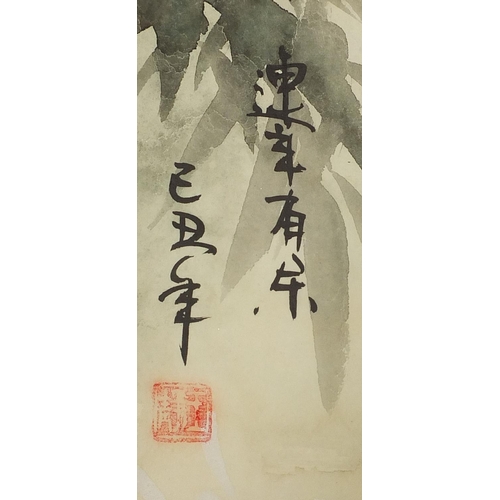 連年有余
己丑年